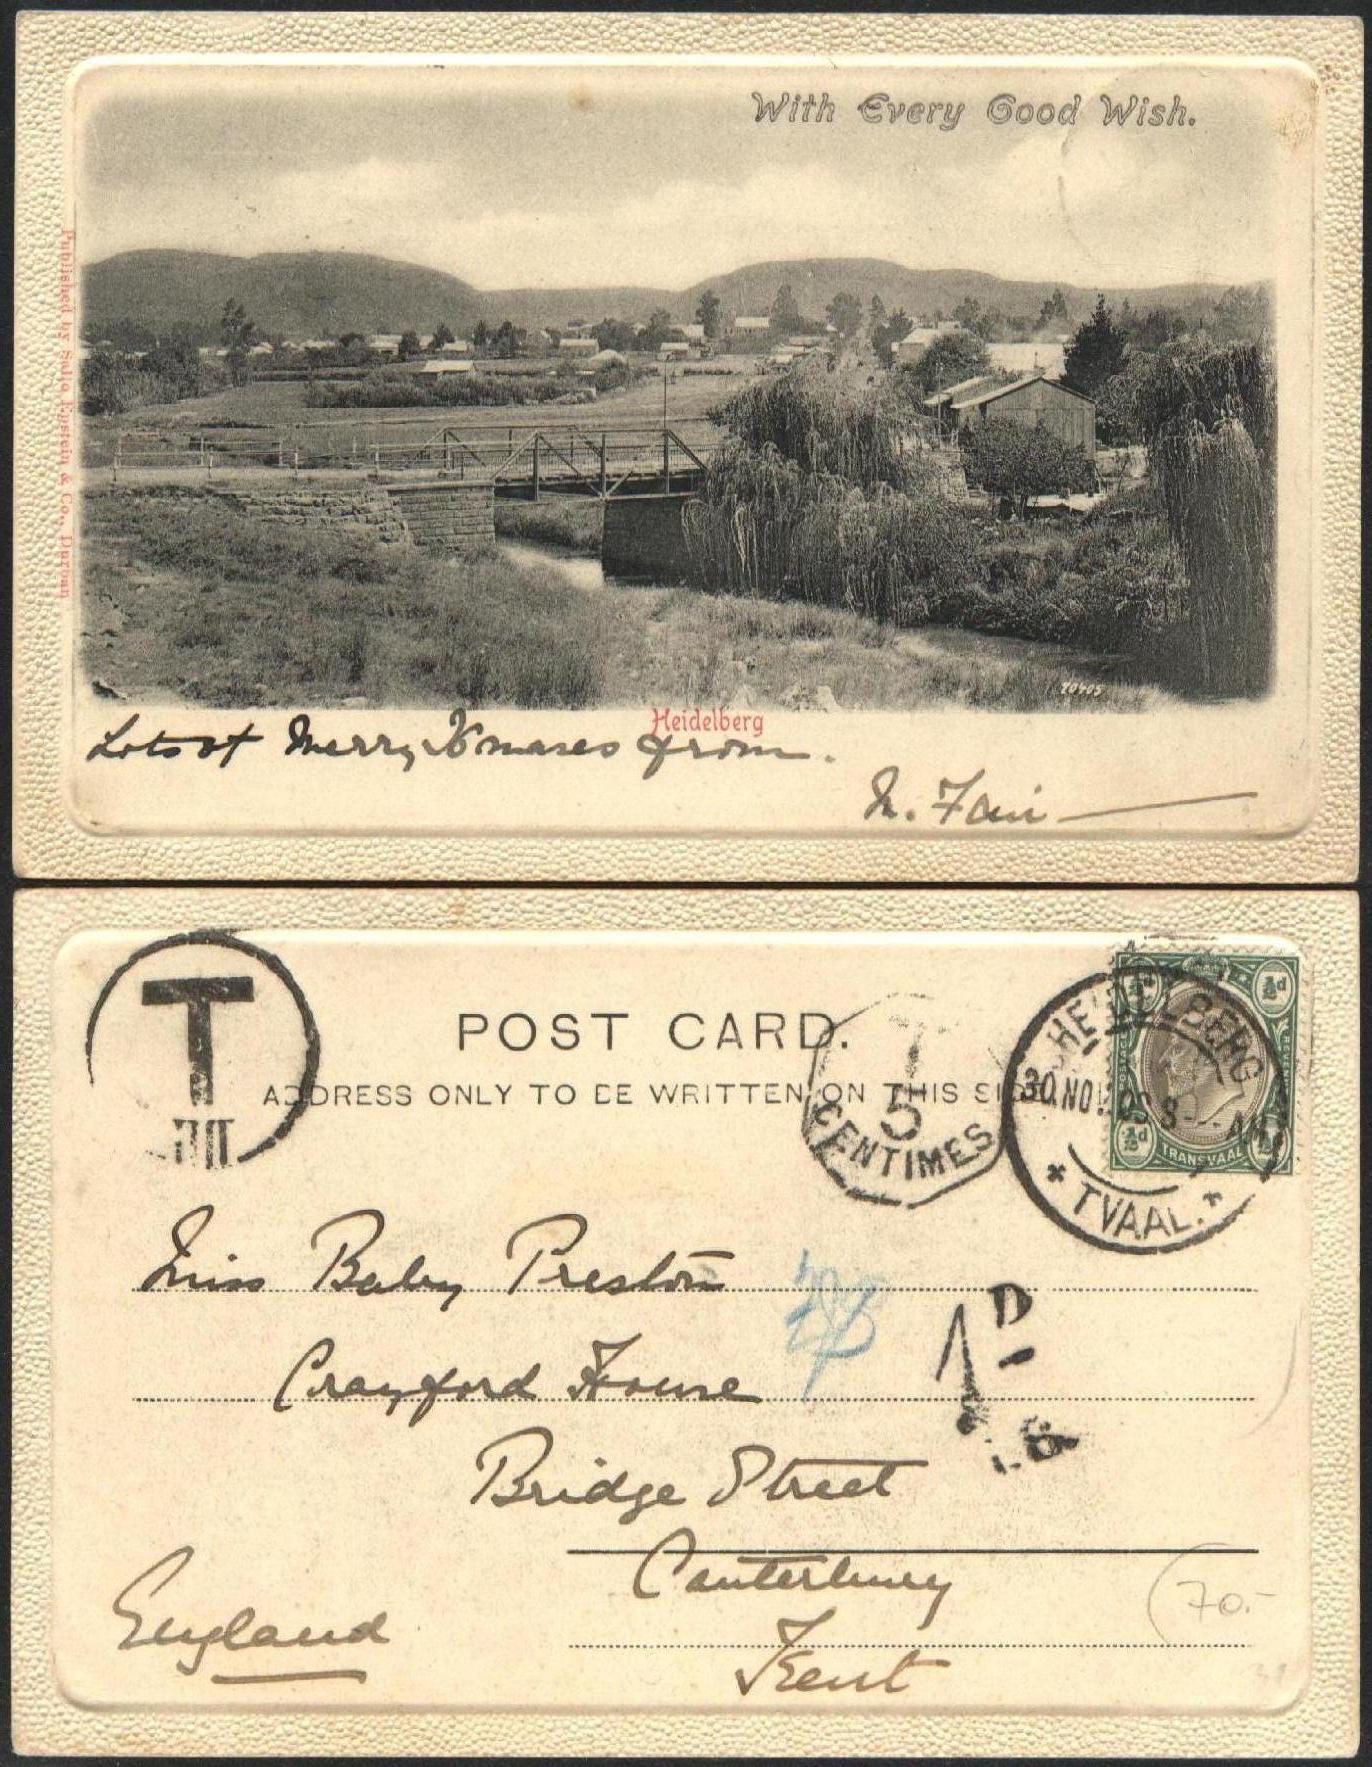 With Every Good Wish.
Published by Sallo Epstein & Co., Durban
70405
Heidelberg
Lots of Merry Xmases from.
N. Fair
T
POST CARD.
ADDRESS ONLY TO BE WRITTEN ON THIS SIDE
T
5
CENTIMES
HEIDELBERG
30 NO
AM
* TVAAL. *
½d
½d
POSTAGE
REVENUE
½d
½d
TRANSVAAL
Miss Baby Preston
Crayford House
1D
Bridge Street
Canterbury
Kent
England
70.-